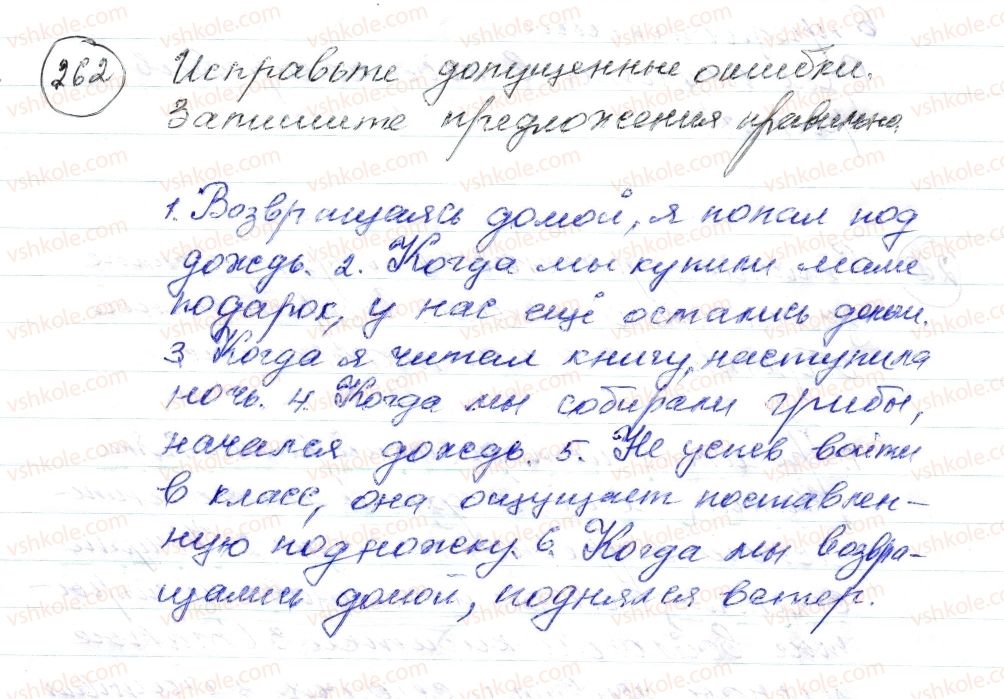 262 Исправьте допущенные ошибки.
Запишите предложения правильно.
1. Возвращаясь домой, я попал под
дождь. 2. Когда мы купили маме
подарок, у нас ещё остались деньги.
3. Когда я читал книгу, наступила
ночь. 4. Когда мы собирали грибы,
начался дождь. 5. Не успев войти
в класс, она ощущает поставлен-
ную подножку. 6. Когда мы возвра-
щались домой, поднялся ветер.